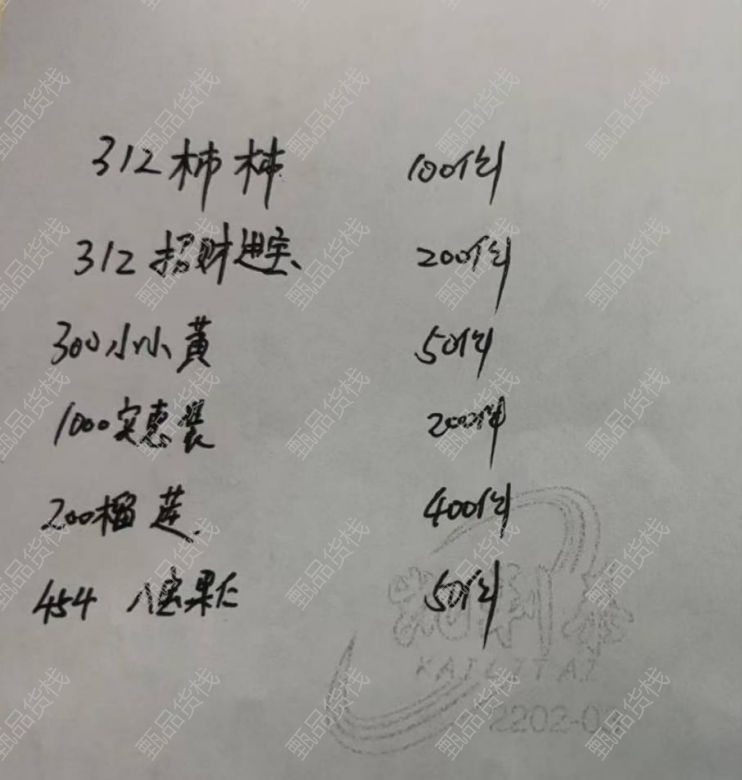 312 柿柿 100件
312 招财进宝 200件
300 小小黄 50件
1000 实惠装 200件
200 榴莲 400件
454 八宝果仁 50件
KAILITAI
甄品货栈